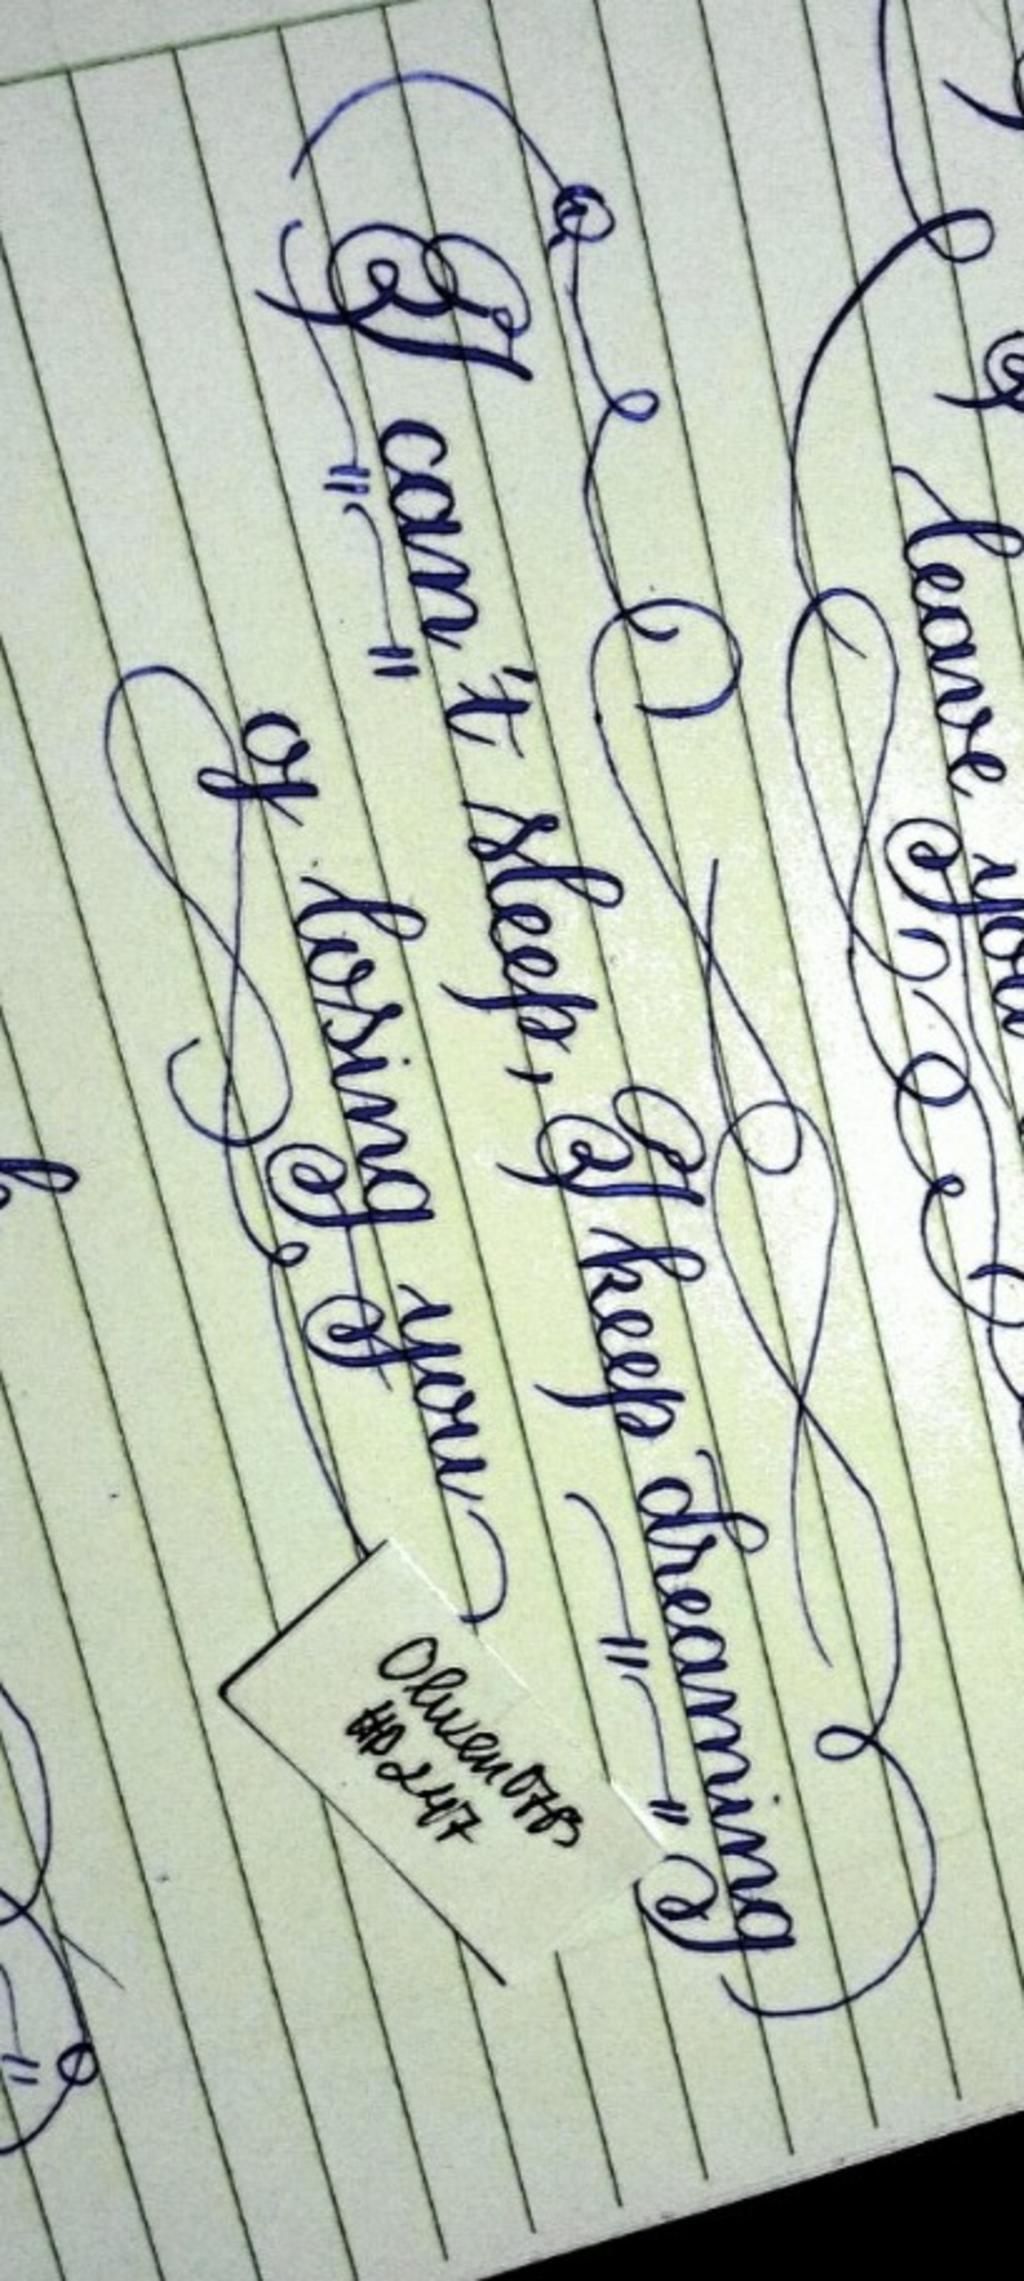 leave you
I can't sleep, I keep dreaming
of losing you